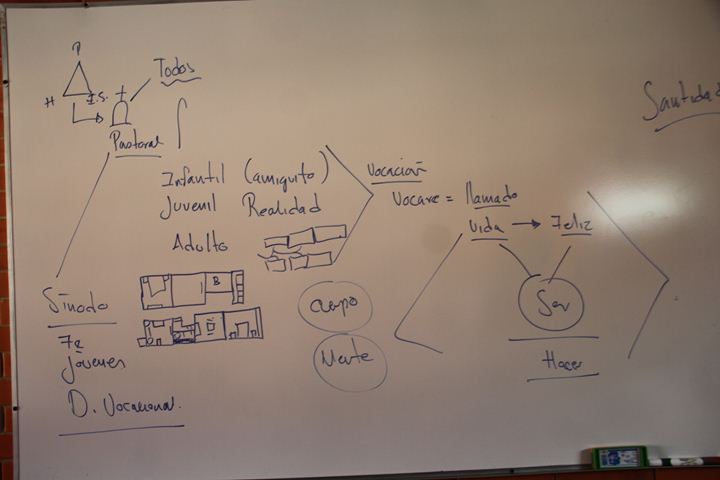 P
Todos
H I.S.
Pastoral
Infantil (amiguito)
Juvenil Realidad
Adulto
B
Sinodo
Fe
Jóvenes
D. Vocacional.
Vocación
Vocare = llamado
Vida → Feliz
Ser
Hacer
Cuerpo
Mente
Santidad